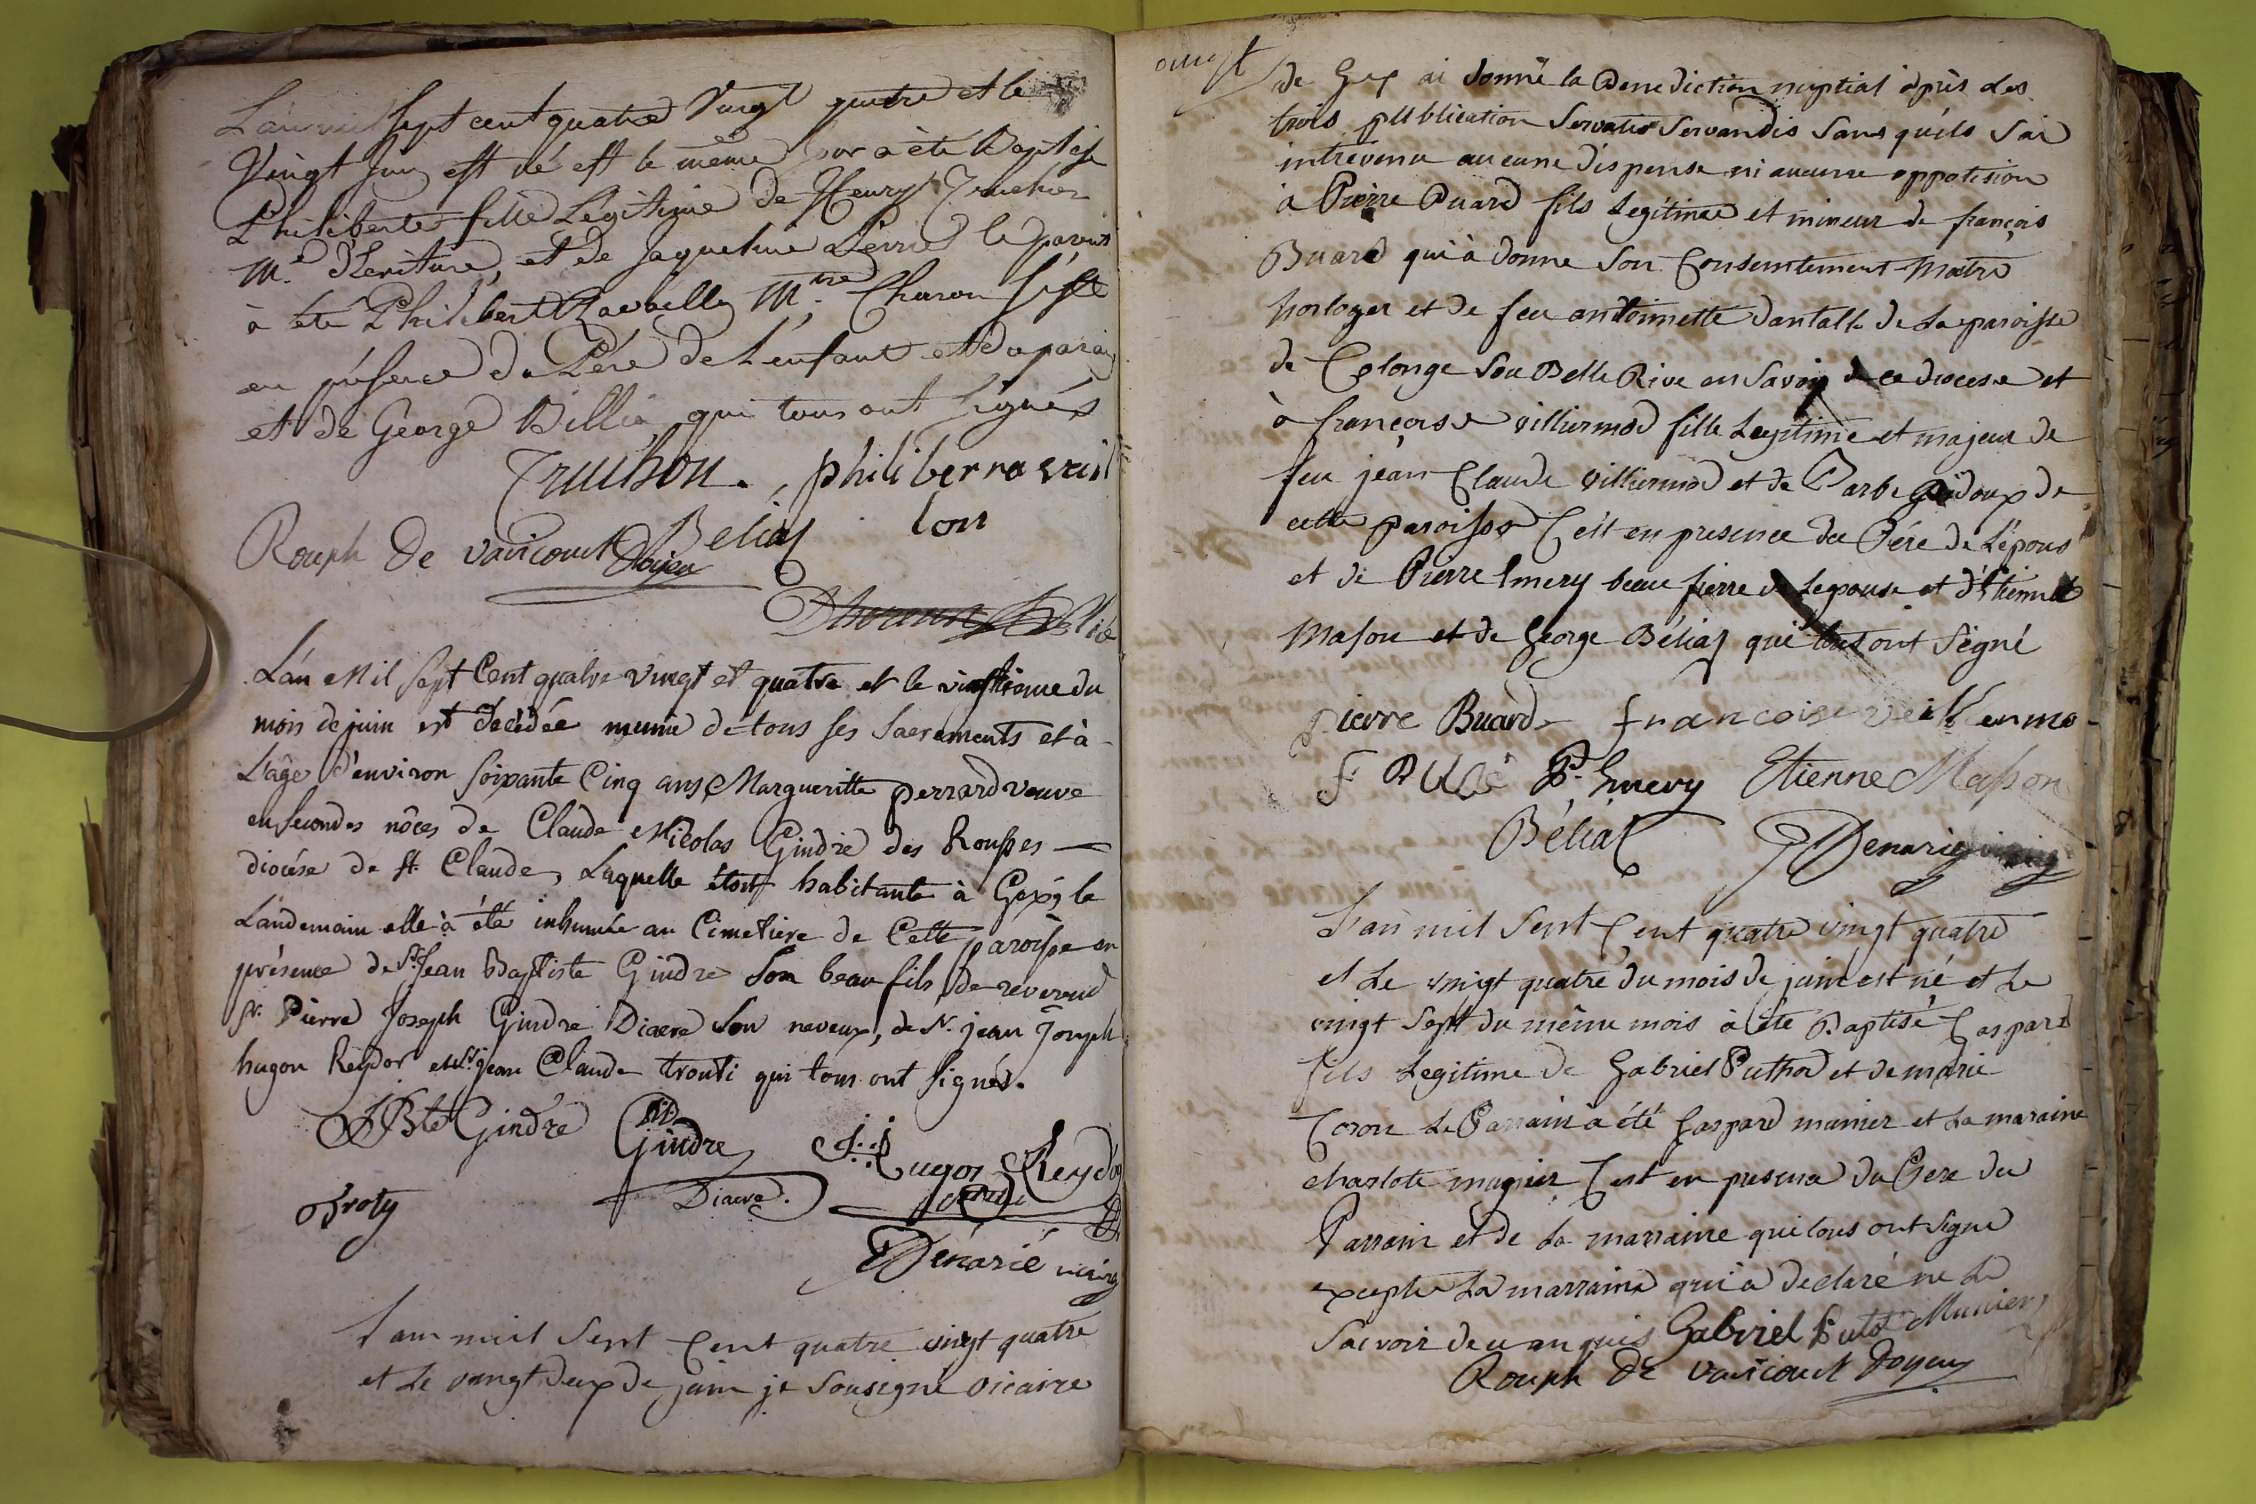 L'an mil sept cent quatre Vingt quatre et le
Vingt juin est né est le même jour a èté Baptisé
Philiberte fille Légitime de Henry Truchon
M.e d'Ecriture, et de Jaqueline le parain
à été Philibert M.tre Charon
en présence du Pére de L'enfant et du parain
et de George Billia qui tous ont signés
Truchon. philiber ravail
lon
Rouph de varicourt Doyen Béliaz
L'an Mil sept Cent quatre vingt et quatre et le vingtieme du
mois de juin est décédée munie de tous ses Sacrements et à
L'age d'environ soixante Cinq ans Margueritte perrard veuve
en secondes nôces de Claude Nicolas Gindre des Rousses —
diocése de st. Claude, Laquelle étoit habitante à Gex, le
Landemain elle à été inhumée au Cimetiere de Cette paroisse en
présence de Sr. Jean Baptiste Gindre son beau fils, de révérend
Sr. Pierre Joseph Gindre Diacre son neveux, de Sr. jean Joseph
hugon Reydor et Sr. jean Claude trouti qui tous ont signés.
JBte Gindre Gindre J: J: Hugon Reydor
Diacre.
Dénarié vicaire
L'an mil Sept Cent quatre vingt quatre
et Le vingt deux de juin je Sousigné vicaire
de Gex ai donné la Benediction nuptial après Les
trois publication Servatis Servandis Sans quéls Soi
intrevenu aucune dispense ni aucune oppotision
à Pierre Buard fils Legitime et mineur de françois
Buard qui à donne Son Consentement Maitre
horloger et de feu antoinette dantall de La paroisse
de Colonge Sou Belle Rive en Savoy de ce diocese et
à françoise villiermod fille Legitime et majeur de
feu jean Claude villiermod et de Barbe gidoux de
cette paroisse C'est en presence du Pére de L'epous
et de Pierre Emery beau frerre de Lepouse et d'Etienne
Mason et de George Béliaz qui tous ont Signé
Pierre Buard francoise veillermo
F Buard P. Emery Etienne Masson
Béliaz Denarié vicaire
L'an mil Sept Cent quatre vingt quatre
et Le vingt quatre du mois de juin est né et Le
vingt Sept du même mois à été Baptisé Caspard
fils Legitime de Gabriel Puthod et de marie
Coron Le Parrain a été Gaspard munier et La maraine
charlote munier C'est en presence du Pere du
Parrain et de La marraine qui tous ont Signé
excepté La marraine qui a declaré ne Le
Savoir de u an quis Gabriel Putod Munier
Rouph de varicourt Doyen